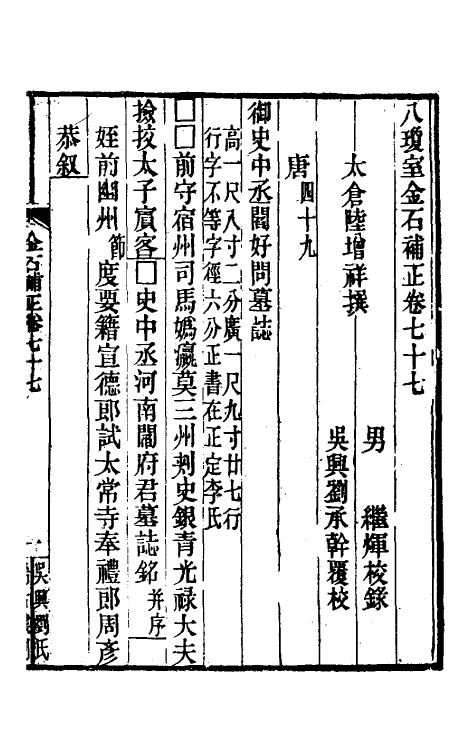 八瓊室金石補正卷七十七
太倉陸增祥撰
男　繼煇校錄
吳興劉承幹覆校
唐四十九
御史中丞閻好問墓誌
高一尺八寸二分廣一尺九寸廿七行
行字不等字徑六分正書在正定李氏
□□前守宿州司馬嬀瀛莫三州刾史銀青光祿大夫
撿挍太子賔客□史中丞河南閻府君墓誌銘并序
姪前幽州節度要籍宣德郎試太常寺奉禮郎周彥
恭叙
金石補正卷七十七
一
吳興劉氏